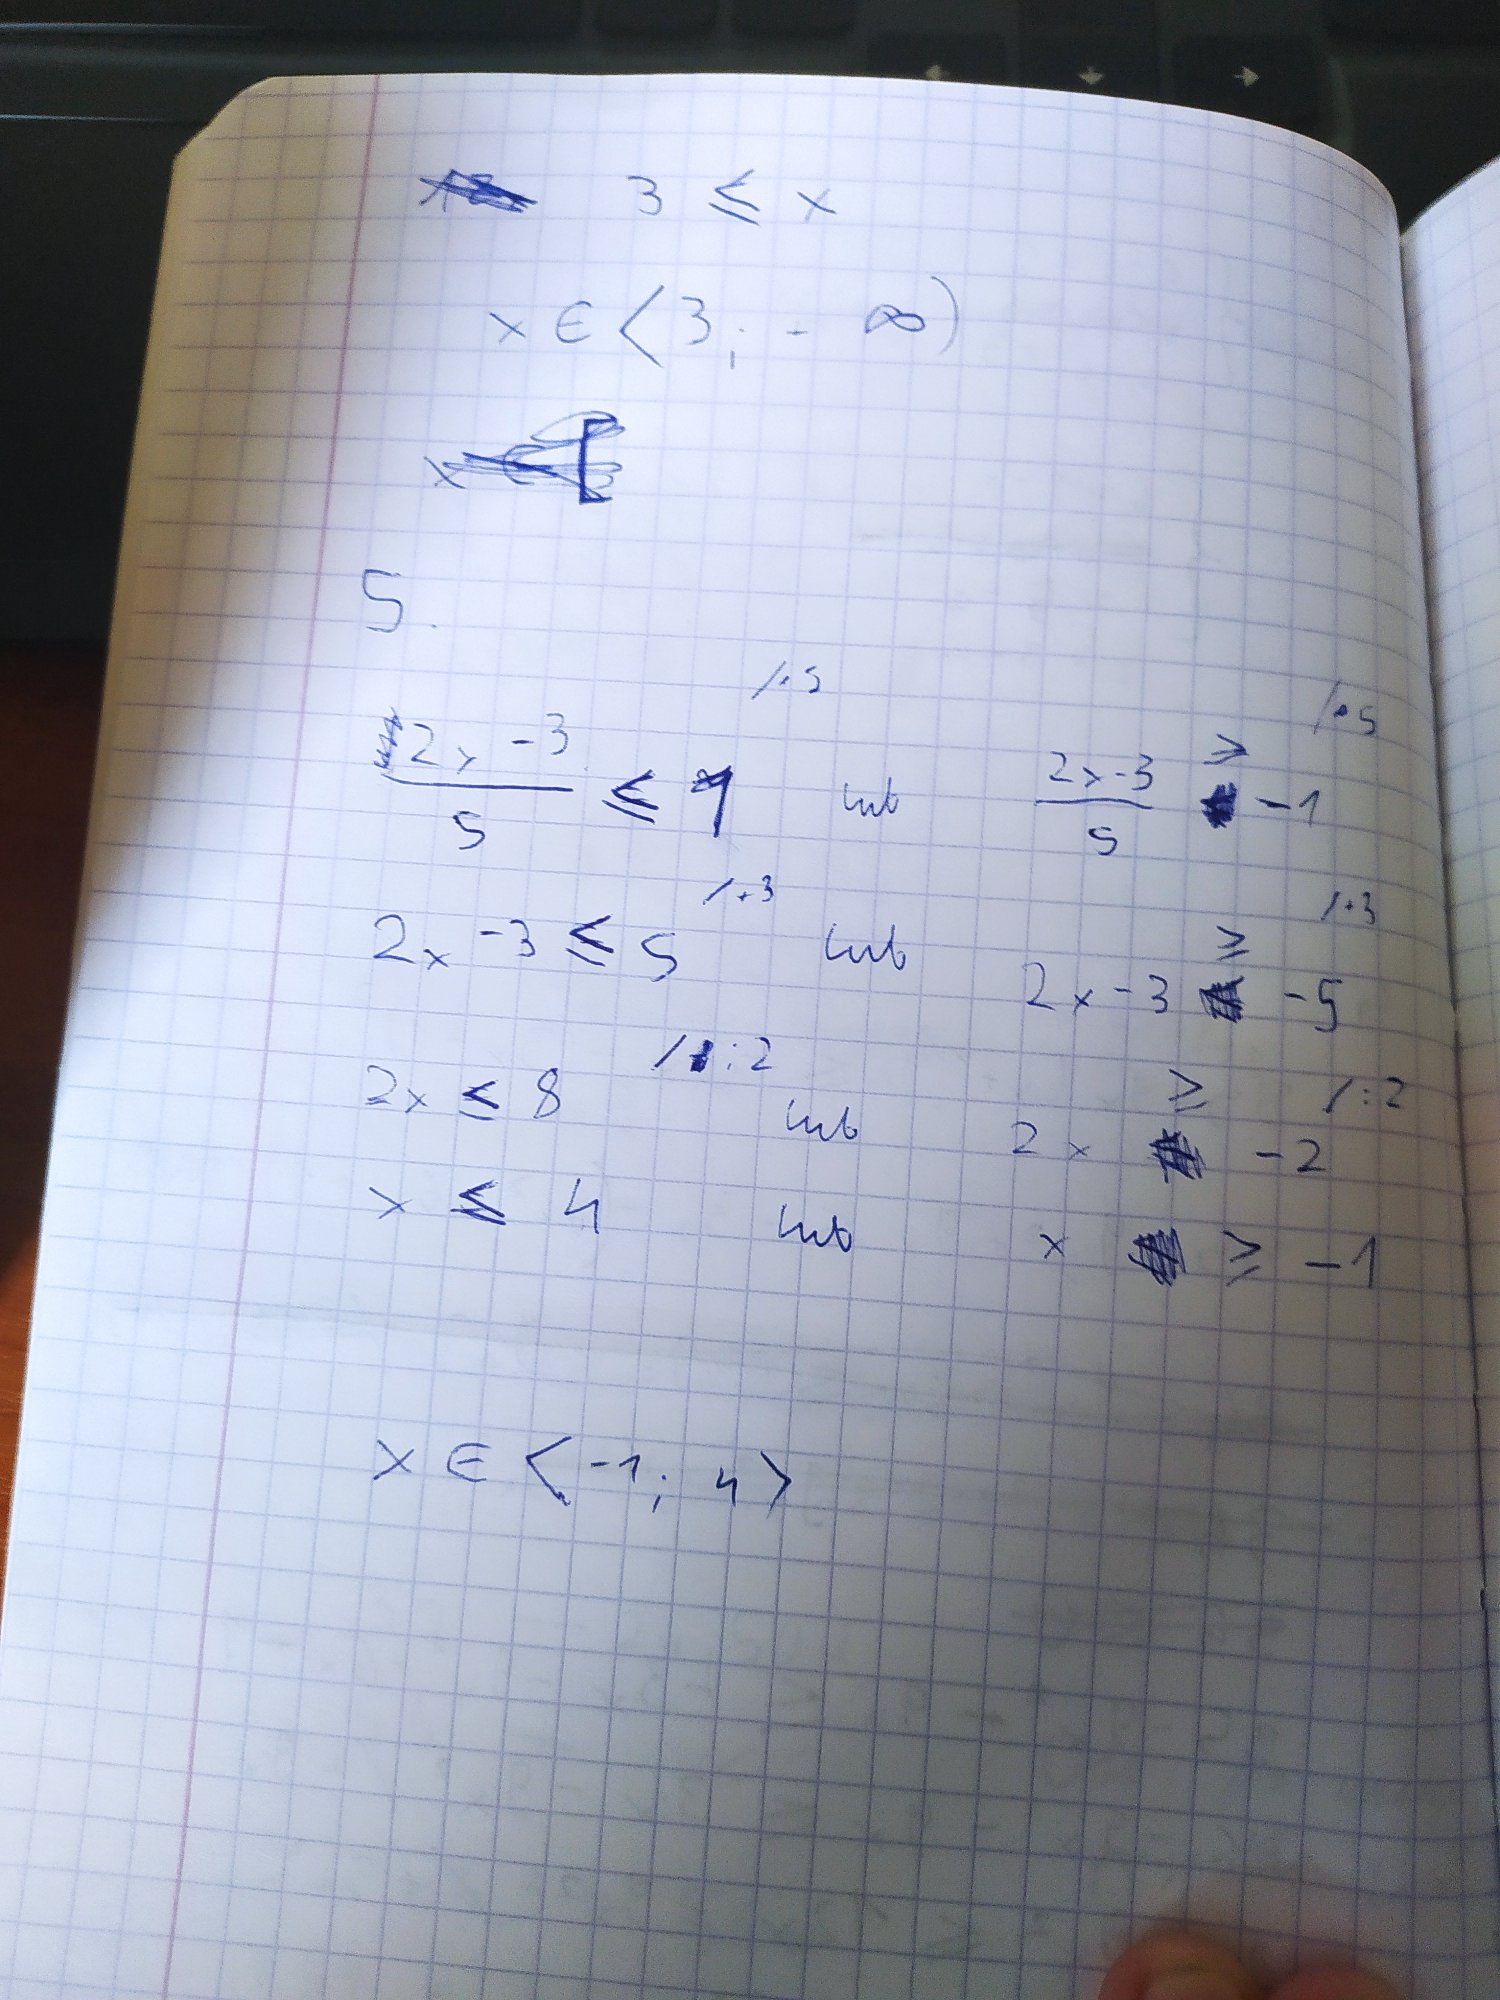 3 ≤ x
x ∈ <3; - ∞)
x
5.
/·5 /·5
2x -3 / 5 ≤ 1 lub 2x-3 / 5 ≥ -1
/+3 /+3
2x -3 ≤ 5 lub 2x -3 ≥ -5
/:2 /:2
2x ≤ 8 lub 2x ≥ -2
x ≤ 4 lub x ≥ -1
x ∈ <-1; 4>